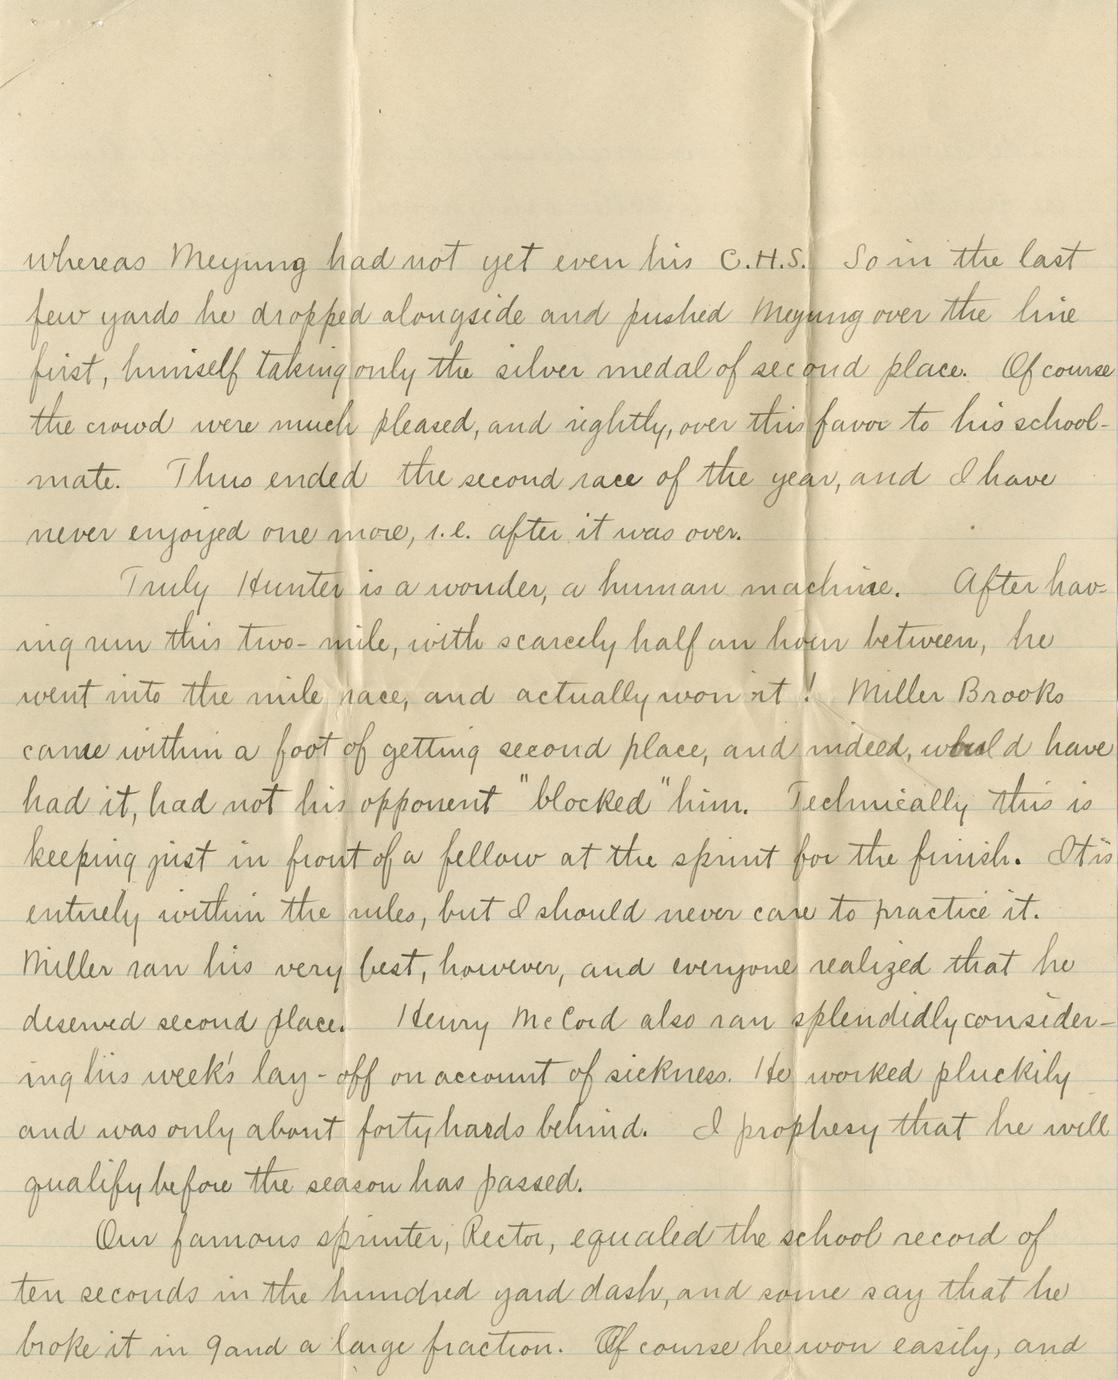 whereas Meyung had not yet even his C.H.S. So in the last
few yards he dropped alongside and pushed Meyung over the line
first, himself taking only the silver medal of second place. Of course
the crowd were much pleased, and rightly, over this favor to his school-
mate. Thus ended the second race of the year, and I have
never enjoyed one more, i.e. after it was over.
Truly Hunter is a wonder, a human machine. After hav-
ing run this two-mile, with scarcely half an hour between, he
went into the mile race, and actually won it! Miller Brooks
came within a foot of getting second place, and indeed, would have
had it, had not his opponent "blocked" him. Technically this is
keeping just in front of a fellow at the sprint for the finish. It is
entirely within the rules, but I should never care to practice it.
Miller ran his very best, however, and everyone realized that he
deserved second place. Henry McCord also ran splendidly consider-
ing his week's lay-off on account of sickness. He worked pluckily
and was only about forty hards behind. I prophesy that he will
qualify before the season has passed.
Our famous sprinter, Rector, equaled the school record of
ten seconds in the hundred yard dash, and some say that he
broke it in 9 and a large fraction. Of course he won easily, and